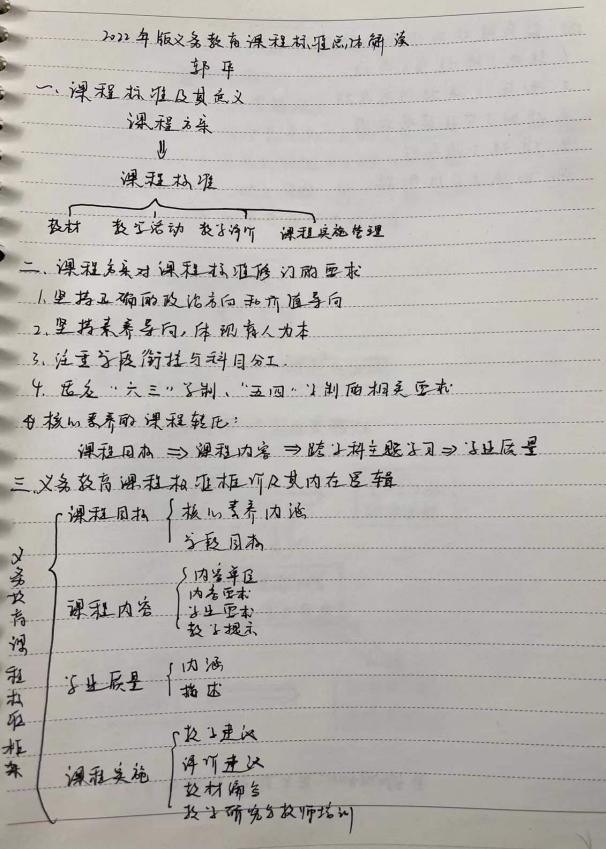 2022年版义务教育课程标准总体解读
郭华
一、课程标准及其定义
课程方案
⇓
课程标准
教材 教学活动 教学评价 课程实施管理
二、课程方案对课程标准修订的要求
1. 坚持正确的政治方向和价值导向
2. 坚持素养导向,体现育人为本
3. 注重学段衔接与科目分工.
4. 落实“六三”学制、“五四”学制的相关要求
核心素养的课程转化:
课程目标 ⇒ 课程内容 ⇒ 跨学科主题学习 ⇒ 学业质量
三、义务教育课程标准框架及其内在逻辑
义务教育课程标准框架
课程目标
核心素养内涵
学段目标
课程内容
内容单位
内容要求
学业要求
教学提示
学业质量
内涵
描述
课程实施
教学建议
评价建议
教材编写
教学研究与教师培训